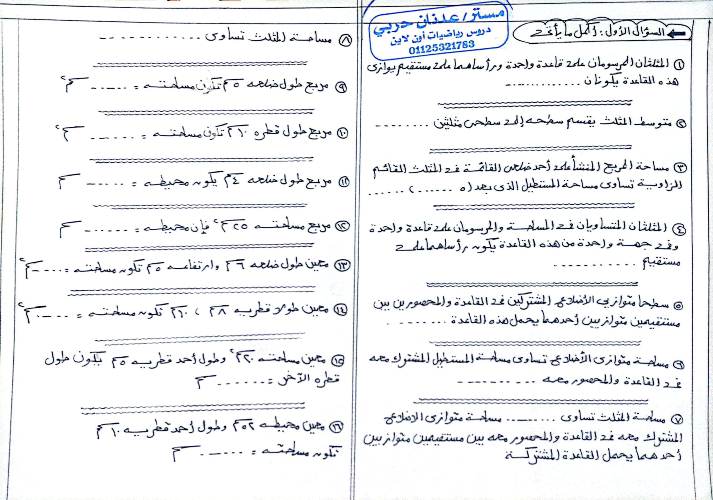 مستر/عدنان حربي
دروس رياضيات أون لاين
01125321783
السؤال الأول: أكمل ما يأتى
① المثلثان المرسومان على قاعدة واحدة ورأساهما على مستقيم يوازى
هذه القاعدة يكونان ............
② متوسط المثلث يقسم سطحه إلى سطحى مثلثين ........
③ مساحة المربع المنشأ على أحد ضلعى القائمة فى المثلث القائم
الزاوية تساوى مساحة المستطيل الذى بعداه ....... ، ......
④ المثلثان المتساويان فى المساحة والمرسومان على قاعدة واحدة
وفى جهة واحدة من هذه القاعدة يكون رأساهما على
مستقيم ............
⑤ سطحا متوازيى الأضلاع المشتركين فى القاعدة والمحصورين بين
مستقيمين متوازيين أحدهما يحمل هذه القاعدة ........
⑥ مساحة متوازى الأضلاع تساوى مساحة المستطيل المشترك معه
فى القاعدة والمحصور معه ............
⑦ مساحة المثلث تساوى ........ مساحة متوازى الأضلاع
المشترك معه فى القاعدة والمحصور معه بين مستقيمين متوازيين
أحدهما يحمل القاعدة المشتركة
⑧ مساحة المثلث تساوى ............
⑨ مربع طول ضلعه ٥ سم تكون مساحته = ...... سم٢
⑩ مربع طول قطره ١٠ سم تكون مساحته = ...... سم٢
⑪ مربع طول ضلعه ٤ سم يكون محيطه = ...... سم
⑫ مربع مساحته ٢٥ سم٢ فإن محيطه = ....... سم
⑬ معين طول ضلعه ٦ سم وارتفاعه ٥ سم تكون مساحته = ..... سم٢
⑭ معين طولا قطريه ٨ سم ، ١٠ سم تكون مساحته = ..... سم٢
⑮ معين مساحته ٢٠ سم٢ وطول أحد قطريه ٥ سم يكون طول
قطره الآخر = ....... سم
⑯ معين محيطه ٥٢ سم وطول أحد قطريه ١٠ سم
تكون مساحته = ....... سم